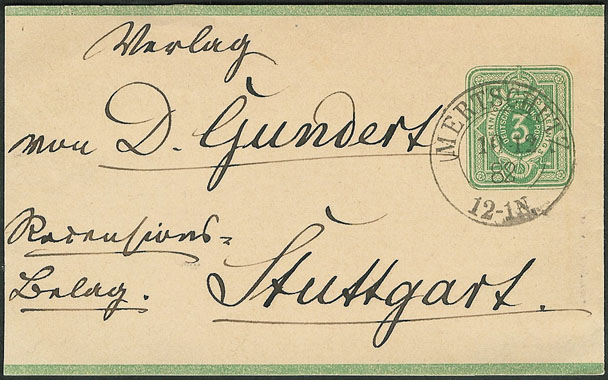 Verlag
von D. Gundert
Recensions=
Belag.
Stuttgart.
3
88
12-1N.